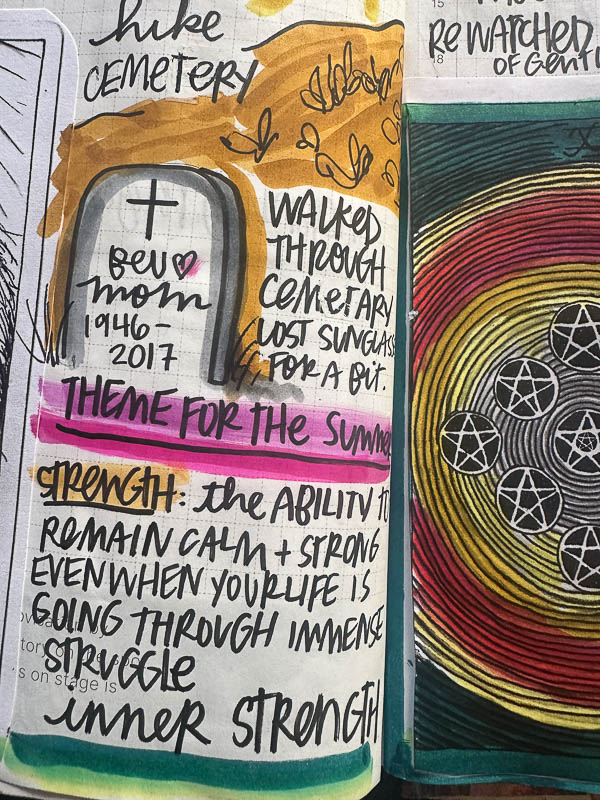 hike
CEMETERY
BEV
mom
1946-
2017
WALKED
THROUGH
CEMETARY
LOST SUNGLASS
FOR A BIT.
THEME FOR THE SUMMER
STRENGTH: the ABILITY TO
REMAIN CALM + STRONG
EVEN WHEN YOUR LIFE IS
GOING THROUGH IMMENSE
STRUGGLE
s on stage is
inner STRENGTH
15
REWATCHED
18
OF GENTL